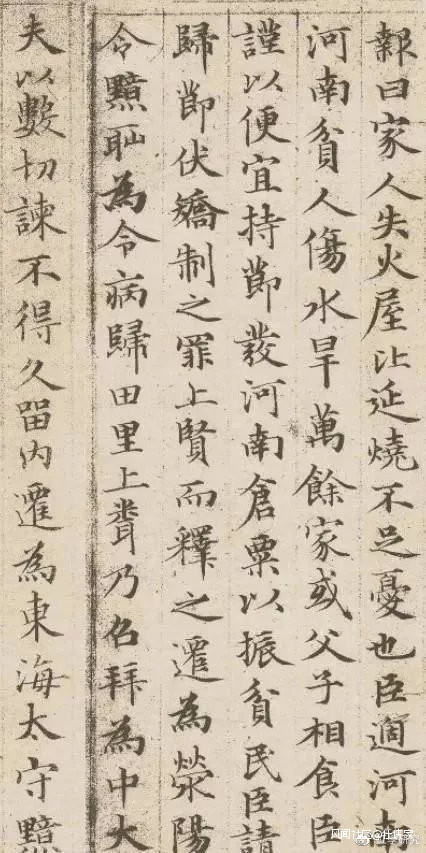 報曰家人失火屋比延燒不足憂也臣過河南
河南貧人傷水旱萬餘家或父子相食臣
謹以便宜持節發河南倉粟以振貧民臣請
歸節伏矯制之罪上賢而釋之遷為滎陽
令黯恥為令病歸田里上聞乃召拜為中大
夫以數切諫不得久留內遷為東海太守黯